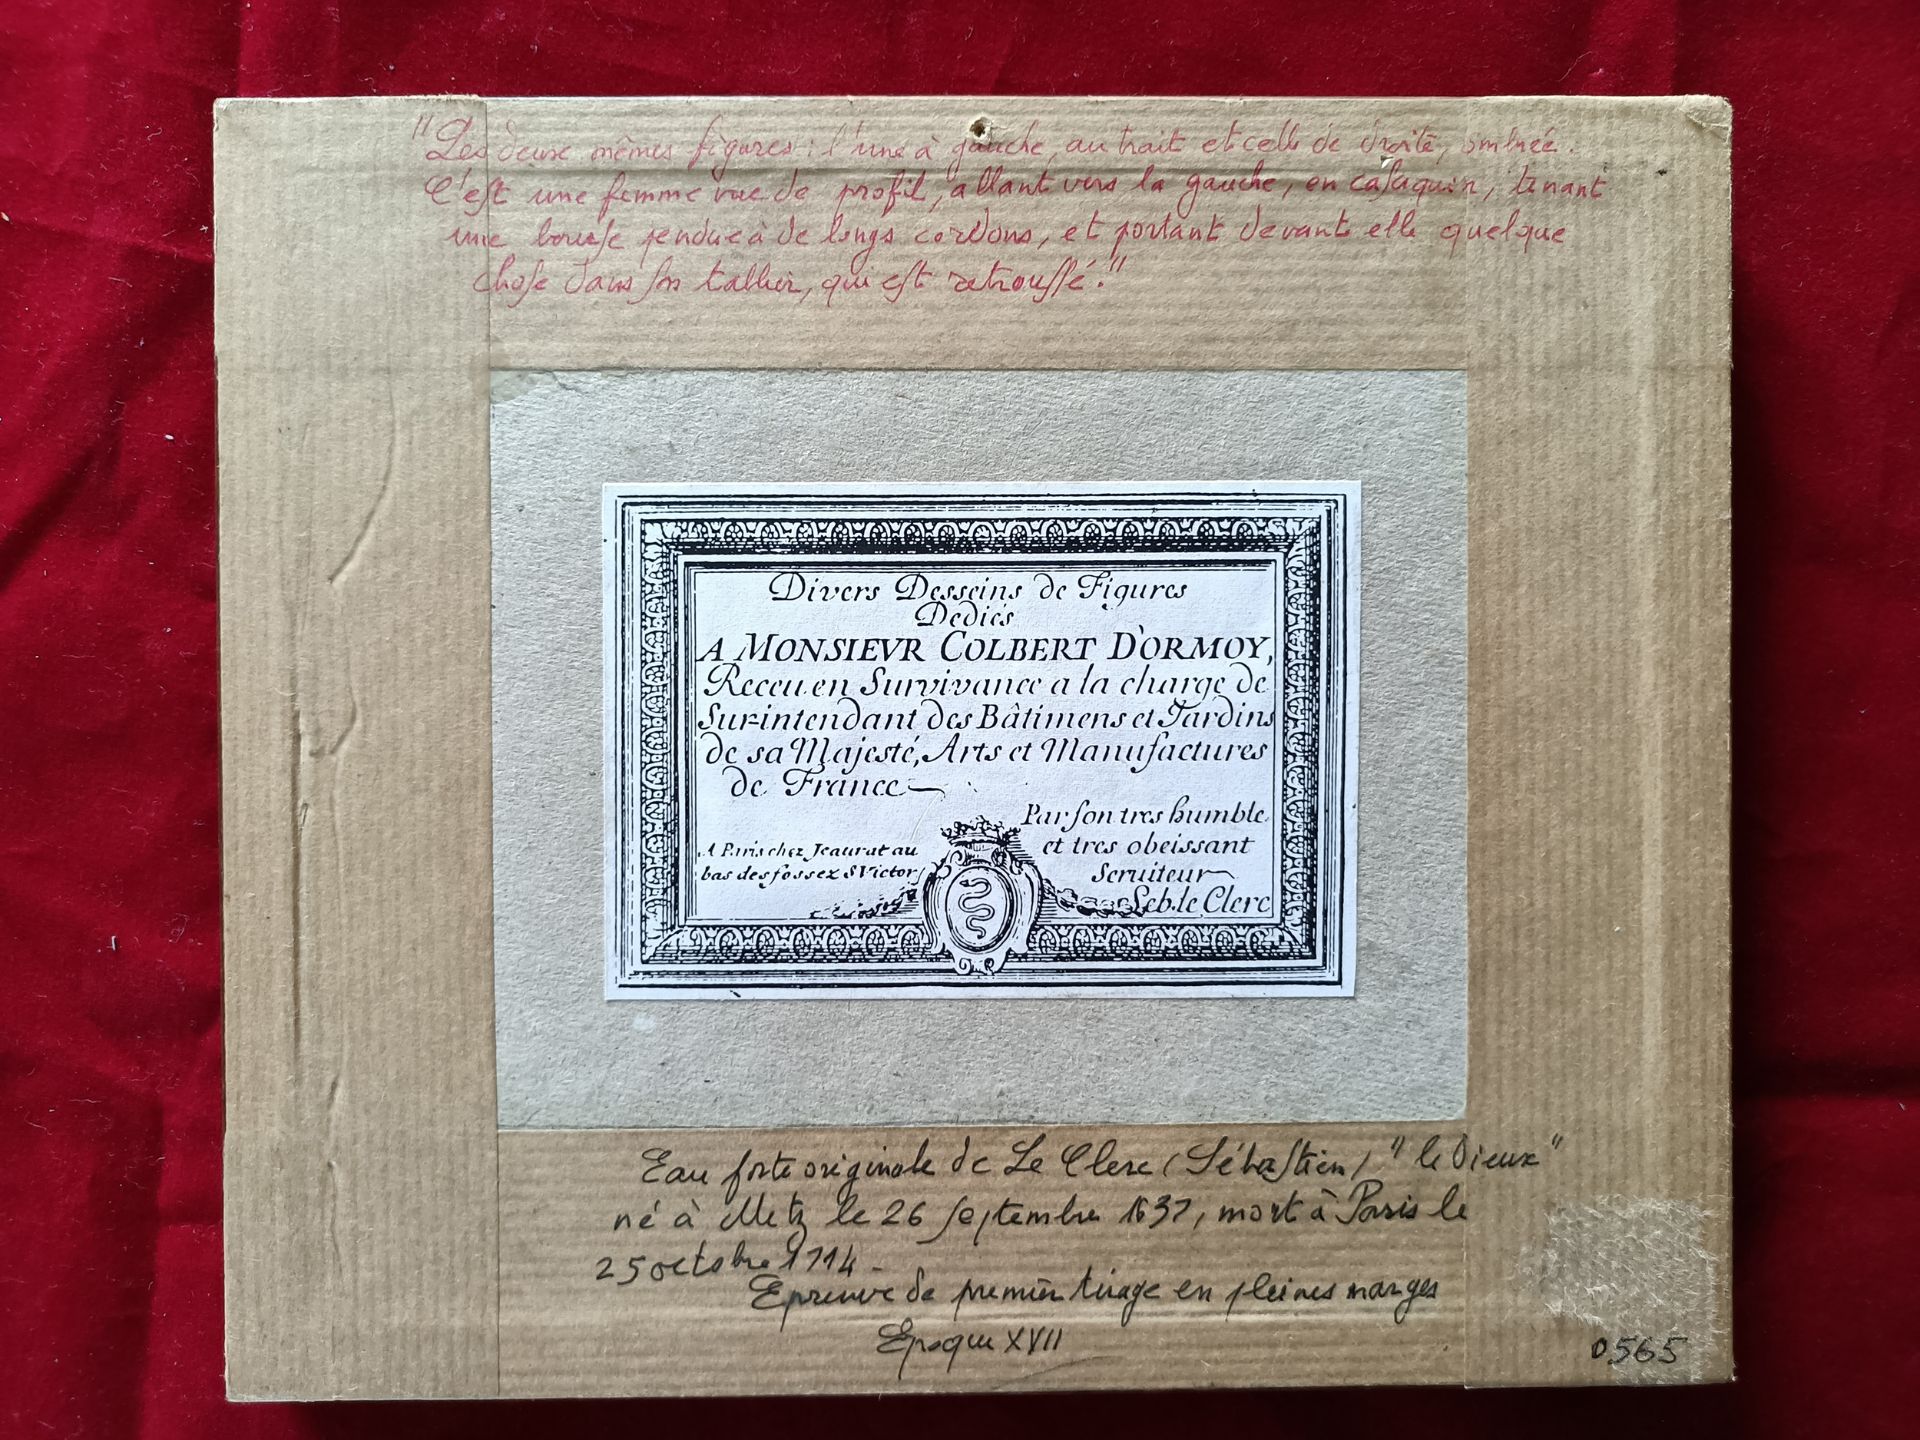 "Les deux mêmes figures : l'une à gauche, au trait et celle de droite, ombrée.
C'est une femme vue de profil, allant vers la gauche, en casaquin, tenant
une bourse pendue à de longs cordons, et portant devant elle quelque
chose dans son tablier, qui est retroussé."
Divers Desseins de Figures
Dediés
A MONSIEVR COLBERT D'ORMOY,
Receu en Survivance a la charge de
Surintendant des Bâtimens et Jardins
de sa Majesté, Arts et Manufactures
de France
Par son tres humble
et tres obeissant
Seruiteur
Seb. le Clerc
A Paris chez Jeaurat au
bas des fossez S Victor
Eau forte originale de Le Clerc (Sébastien) "le Vieux"
né à Metz le 26 septembre 1637, mort à Paris le
25 octobre 1714.
Epreuve de premier tirage en pleines marges
Epoque XVII
0565